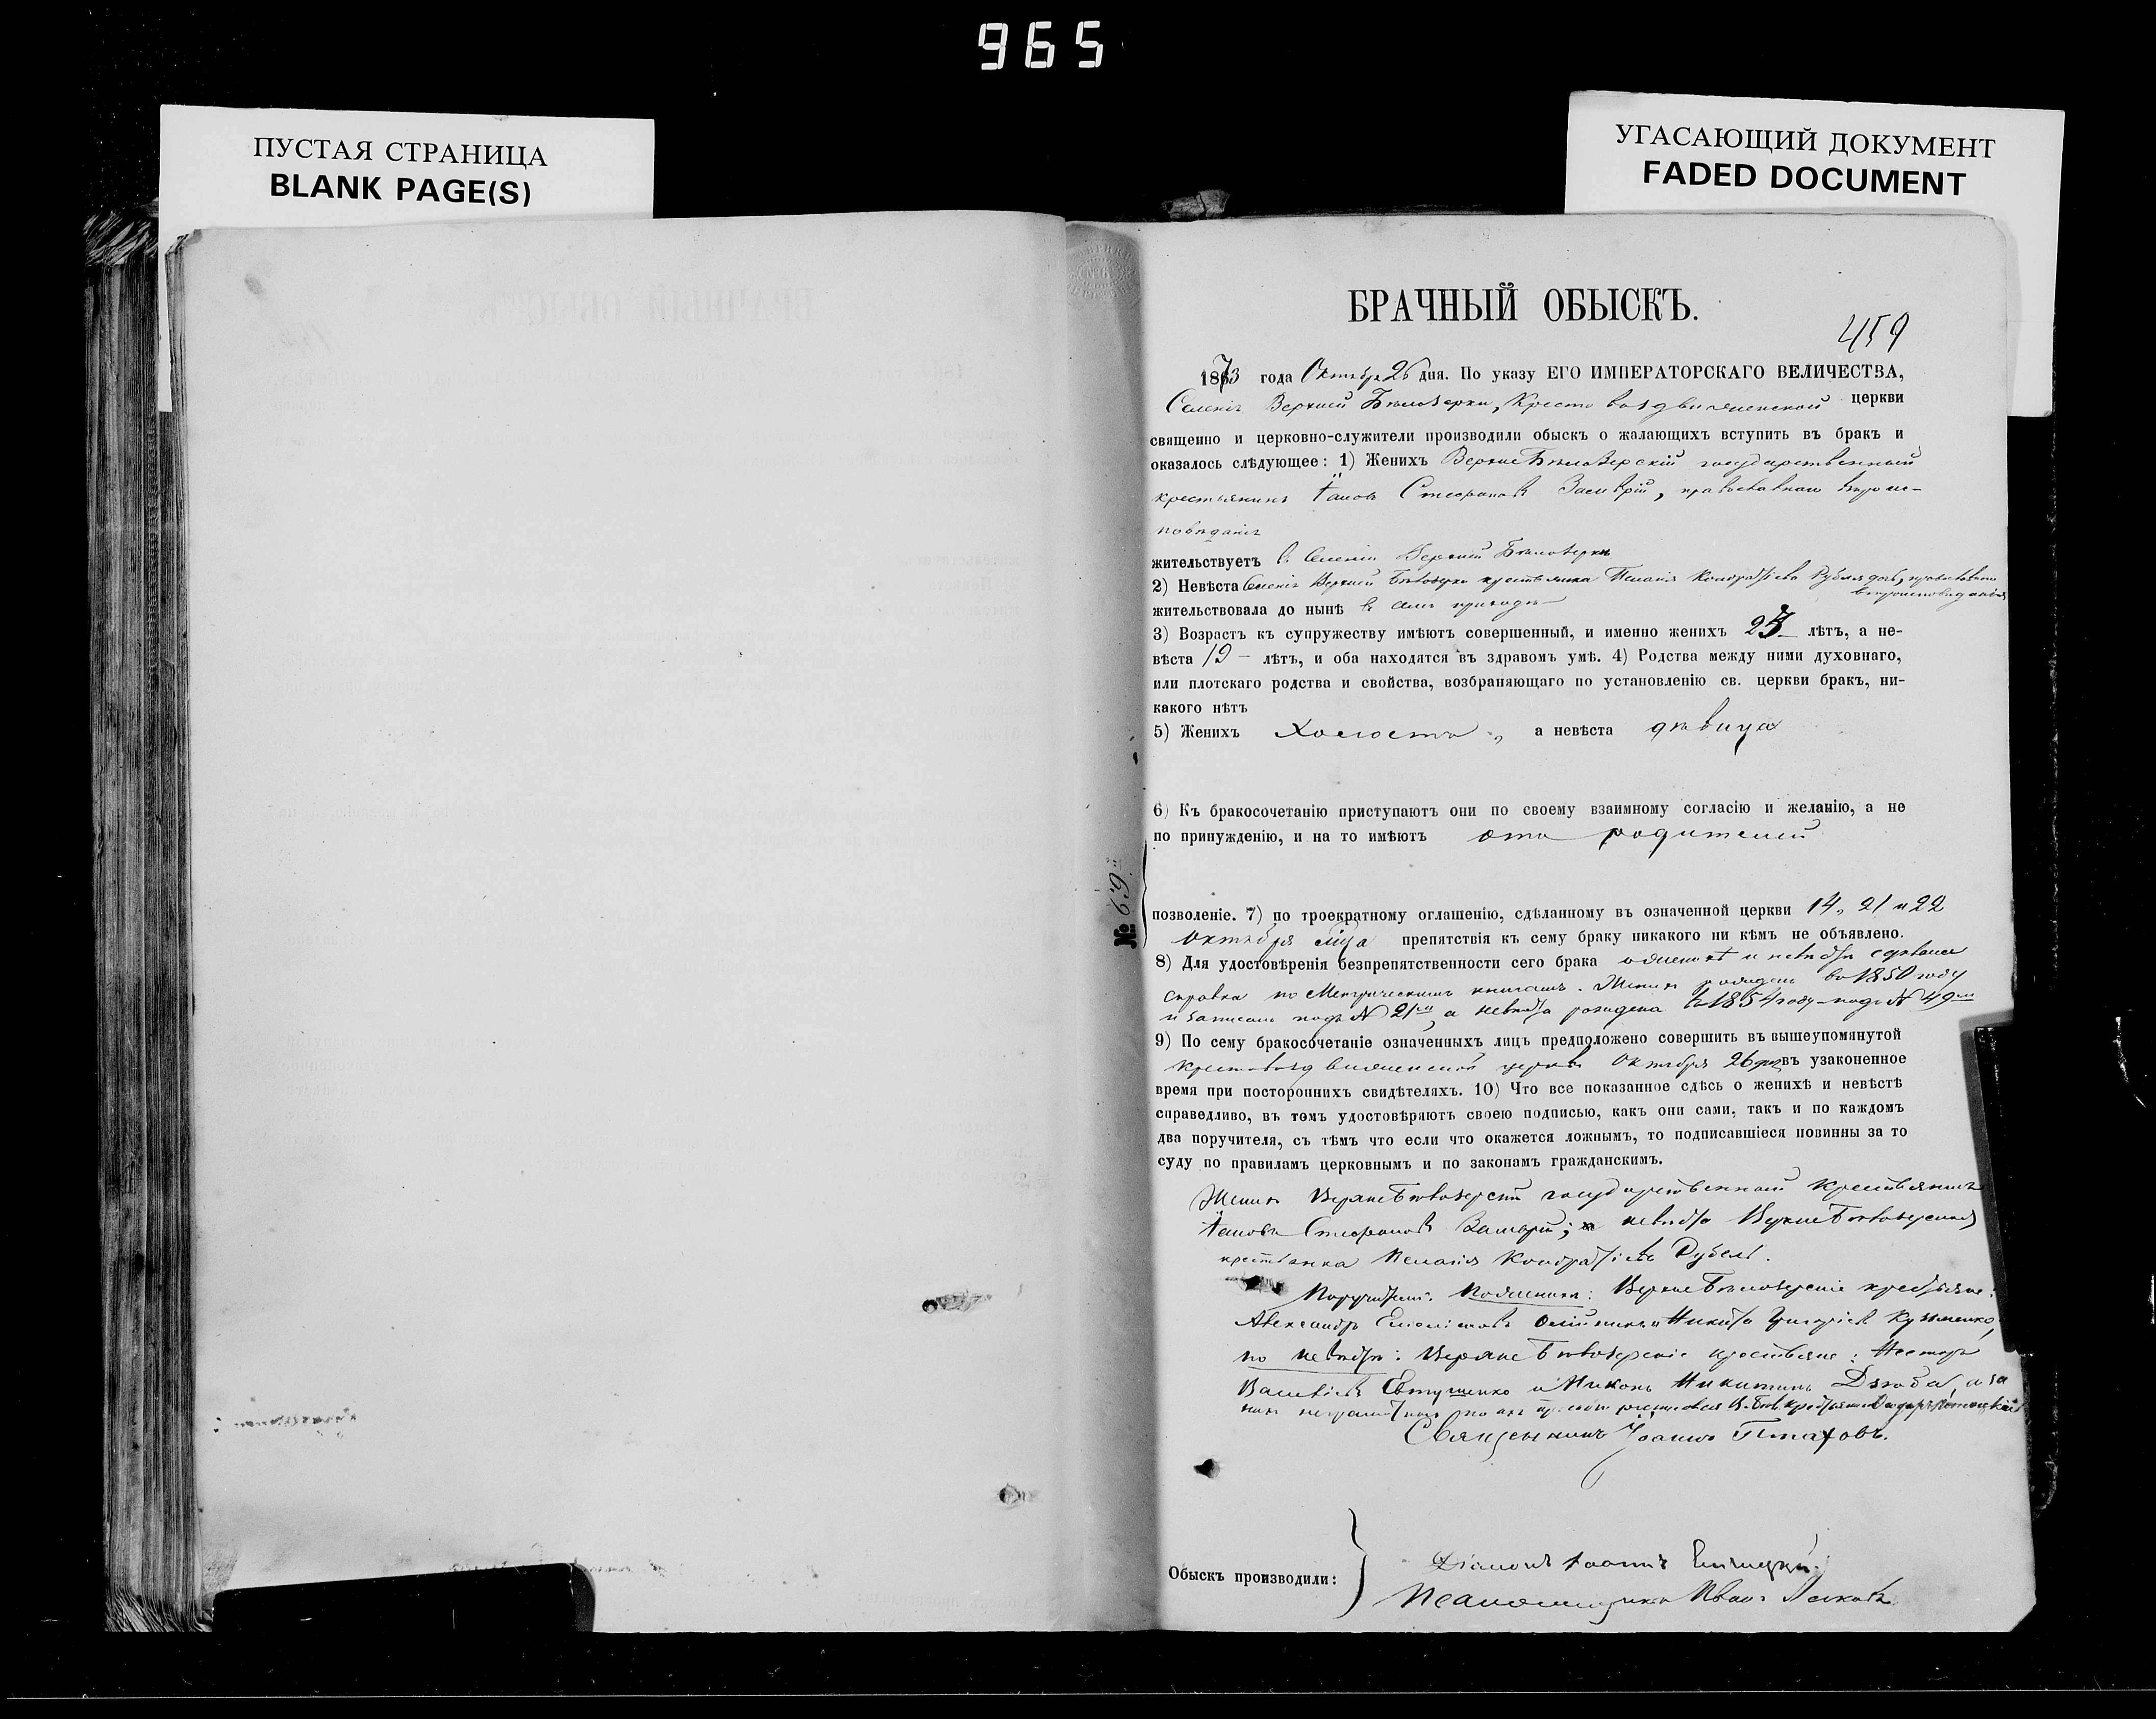 965
ПУСТАЯ СТРАНИЦА
BLANK PAGE(S)
УГАСАЮЩИЙ ДОКУМЕНТ
FADED DOCUMENT
БРАЧНЫЙ ОБЫСКЪ.
459
1873 года Октября 26 дня. По указу ЕГО ИМПЕРАТОРСКАГО ВЕЛИЧЕСТВА,
Селенія Верхней Бѣлозерки, Кресто воздвиженской церкви
священно и церковно-служители производили обыскъ о жалающихъ вступить въ бракъ и
оказалось слѣдующее: 1) Женихъ ВерхнеБѣлозерскій государственный
крестьянинъ Стефановъ православнаго вѣроис-
повѣданія
жительствуетъ въ Селеніи Верхней Бѣлозерки
2) Невѣста Селенія Верхней Бѣлозерки крестьянка Пелагія Кондратіева
вѣроисповѣданія
жительствовала до нынѣ въ семъ приходѣ
3) Возрастъ къ супружеству имѣютъ совершенный, и именно женихъ 23 лѣтъ, а не-
вѣста 19 лѣтъ, и оба находятся въ здравомъ умѣ. 4) Родства между ними духовнаго,
или плотскаго родства и свойства, возбраняющаго по установленію св. церкви бракъ, ни-
какого нѣтъ
5) Женихъ холостъ, а невѣста дѣвица
6) Къ бракосочетанію приступаютъ они по своему взаимному согласію и желанію, а не
по принужденію, и на то имѣютъ отъ родителей
№ 69
позволеніе. 7) по троекратному оглашенію, сдѣланному въ означенной церкви 14, 21 и 22
октября мѣца препятствія къ сему браку никакого ни кѣмъ не объявлено.
8) Для удостовѣренія безпрепятственности сего брака о женихѣ и невѣстѣ сдѣлана
справка по Метрическимъ книгамъ. Женихъ рожденъ въ 1850 году
и записанъ подъ № 21, а невѣста рождена въ 1854 году подъ № 49
9) По сему бракосочетаніе означенныхъ лицъ предположено совершить въ вышеупомянутой
Крестовоздвиженской церкви Октября 26 дня въ узаконенное
время при постороннихъ свидѣтеляхъ. 10) Что все показанное сдѣсь о женихѣ и невѣстѣ
справедливо, въ томъ удостовѣряютъ своею подписью, какъ они сами, такъ и по каждомъ
два поручителя, съ тѣмъ что если что окажется ложнымъ, то подписавшіеся повинны за то
суду по правиламъ церковнымъ и по законамъ гражданскимъ.
Женихъ ВерхнеБѣлозерскій государственный крестьянинъ
Стефановъ невѣста ВерхнеБѣлозерская
крестьянка Пелагія Кондратіева
Поручители: По женихѣ: ВерхнеБѣлозерскіе крестьяне:
Александръ и Никита Григорьевъ Кузьменко,
по невѣстѣ: ВерхнеБѣлозерскіе крестьяне: Несторъ
Евтушенко и Никонъ Никитинъ Дзюба, а за
Священникъ Іоаннъ Птаховъ.
Обыскъ производили:
Діаконъ Іоаннъ
Псаломщикъ Иванъ